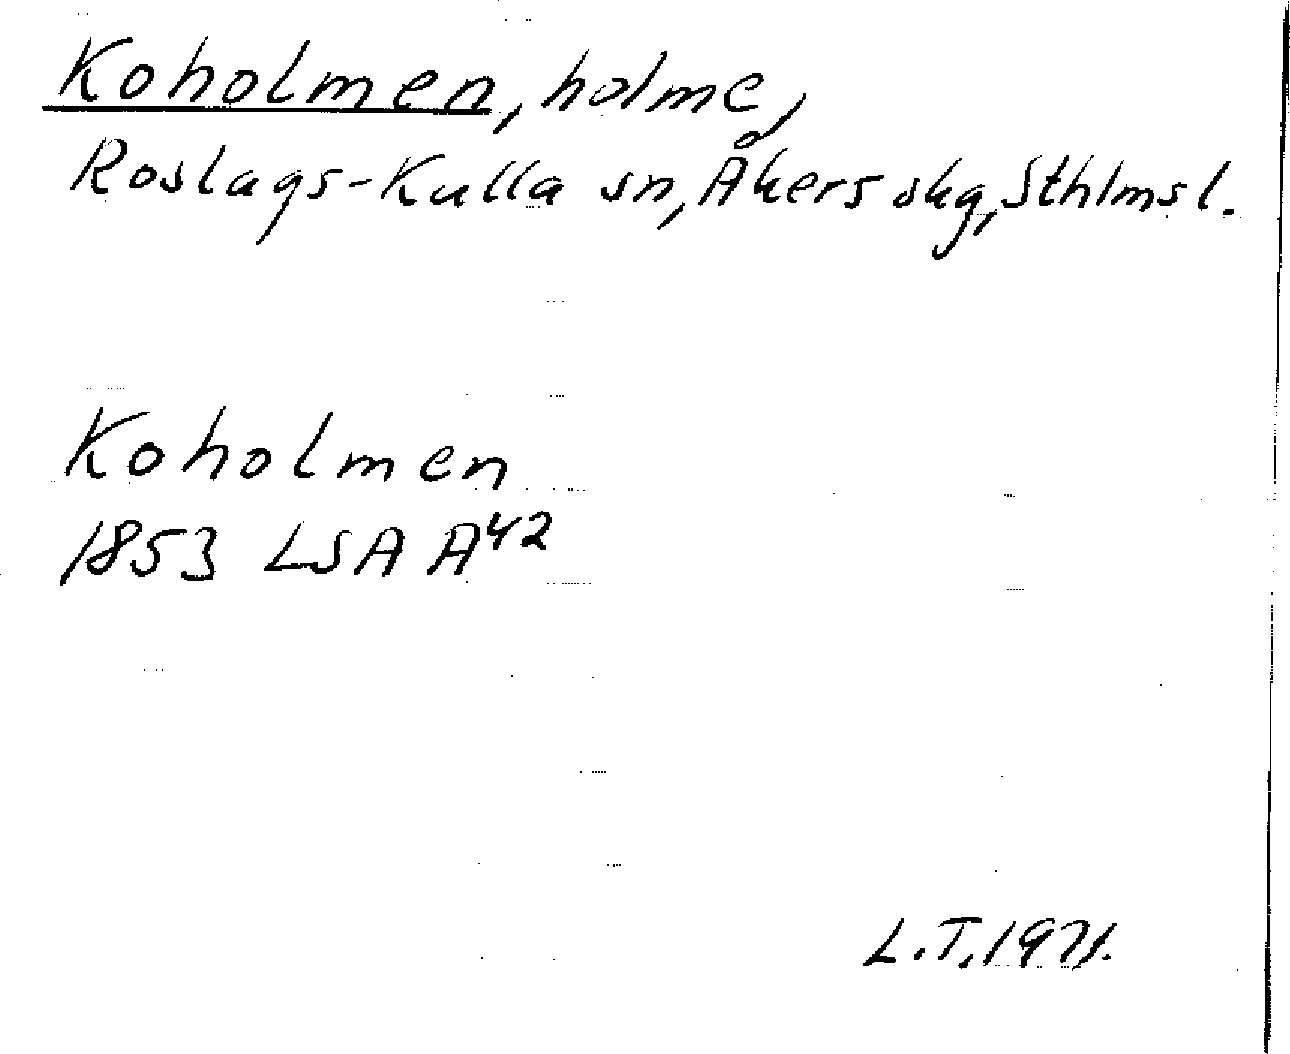 Koholmen, holme,
Roslags-Kulla sn, Åkers skg, Sthlms l.
Koholmen
1853 LSA A42
L.T. 1971.